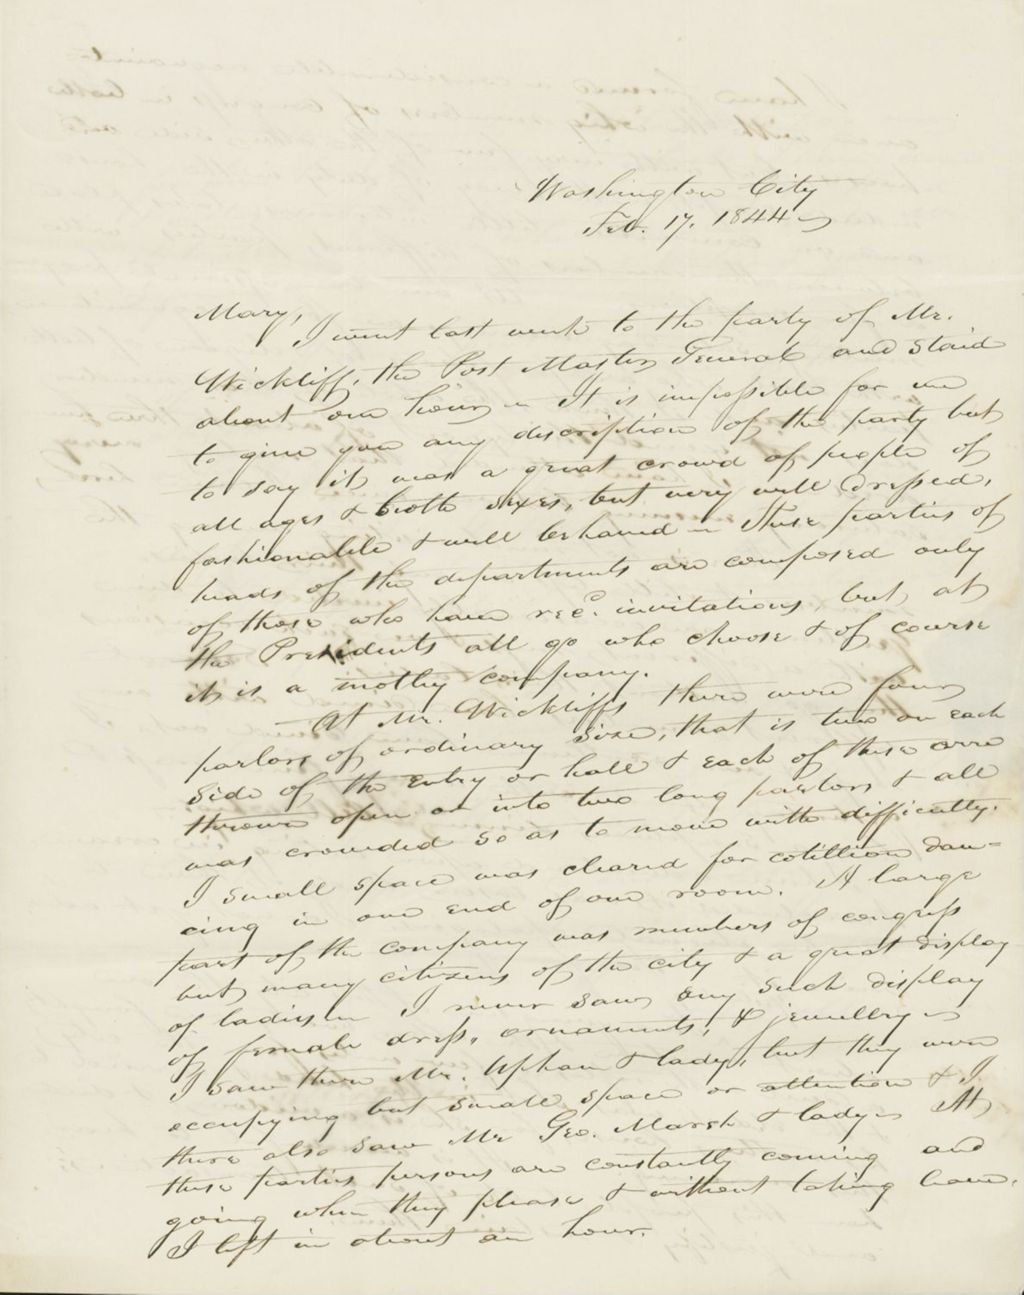 Washington City
Feb. 17. 1844
Mary,
I went last week to the party of Mr.
Wickliff, the Post Master General and staid
about one hour. It is impossible for me
to give you any discription of the party but
to say it was a great crowd of people of
all ages & both sexes, but very well dressed,
fashionable & well behaved. These parties of
heads of the departments are composed only
of those who have recd. invitations, but, at
the Presidents all go who choose & of course
it is a mothy company.
At Mr. Wickliffs there were four
parlors of ordinary size, that is two on each
side of the entry or hall & each of these were
thrown open or into two long parlors & all
was crowded so as to move with difficulty.
A small space was cleared for cotillion dan=
cing in one end of one room. A large
part of the company was members of congress
but many citizens of the city & a great display
of ladies. I never saw any such display
of female dress, ornaments, & jewellery
I saw there Mr. Upham & lady, but they were
occupying but small space or attention & I
there also saw Mr Geo. Marsh & lady. At
these parties persons are constantly coming and
going when they please & without taking leave.
I left in about an hour.